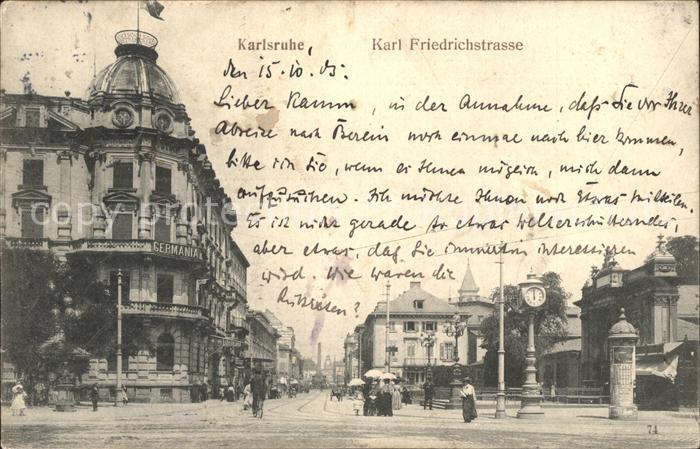 Karlsruhe, Karl Friedrichstrasse
den 15.10.05.
Lieber Kamm, in der Annahme, daß Sie vor Ihrer
Abreise nach Berlin noch einmal nach hier kommen,
bitte ich Sie, wenn es Ihnen möglich, mich dann
aufzusuchen. Ich möchte Ihnen noch Etwas mitteilen.
Es ist nicht gerade so etwas welterschütterndes,
aber etwas, das Sie immerhin interessieren
wird. Wie waren die
GERMANIA
74